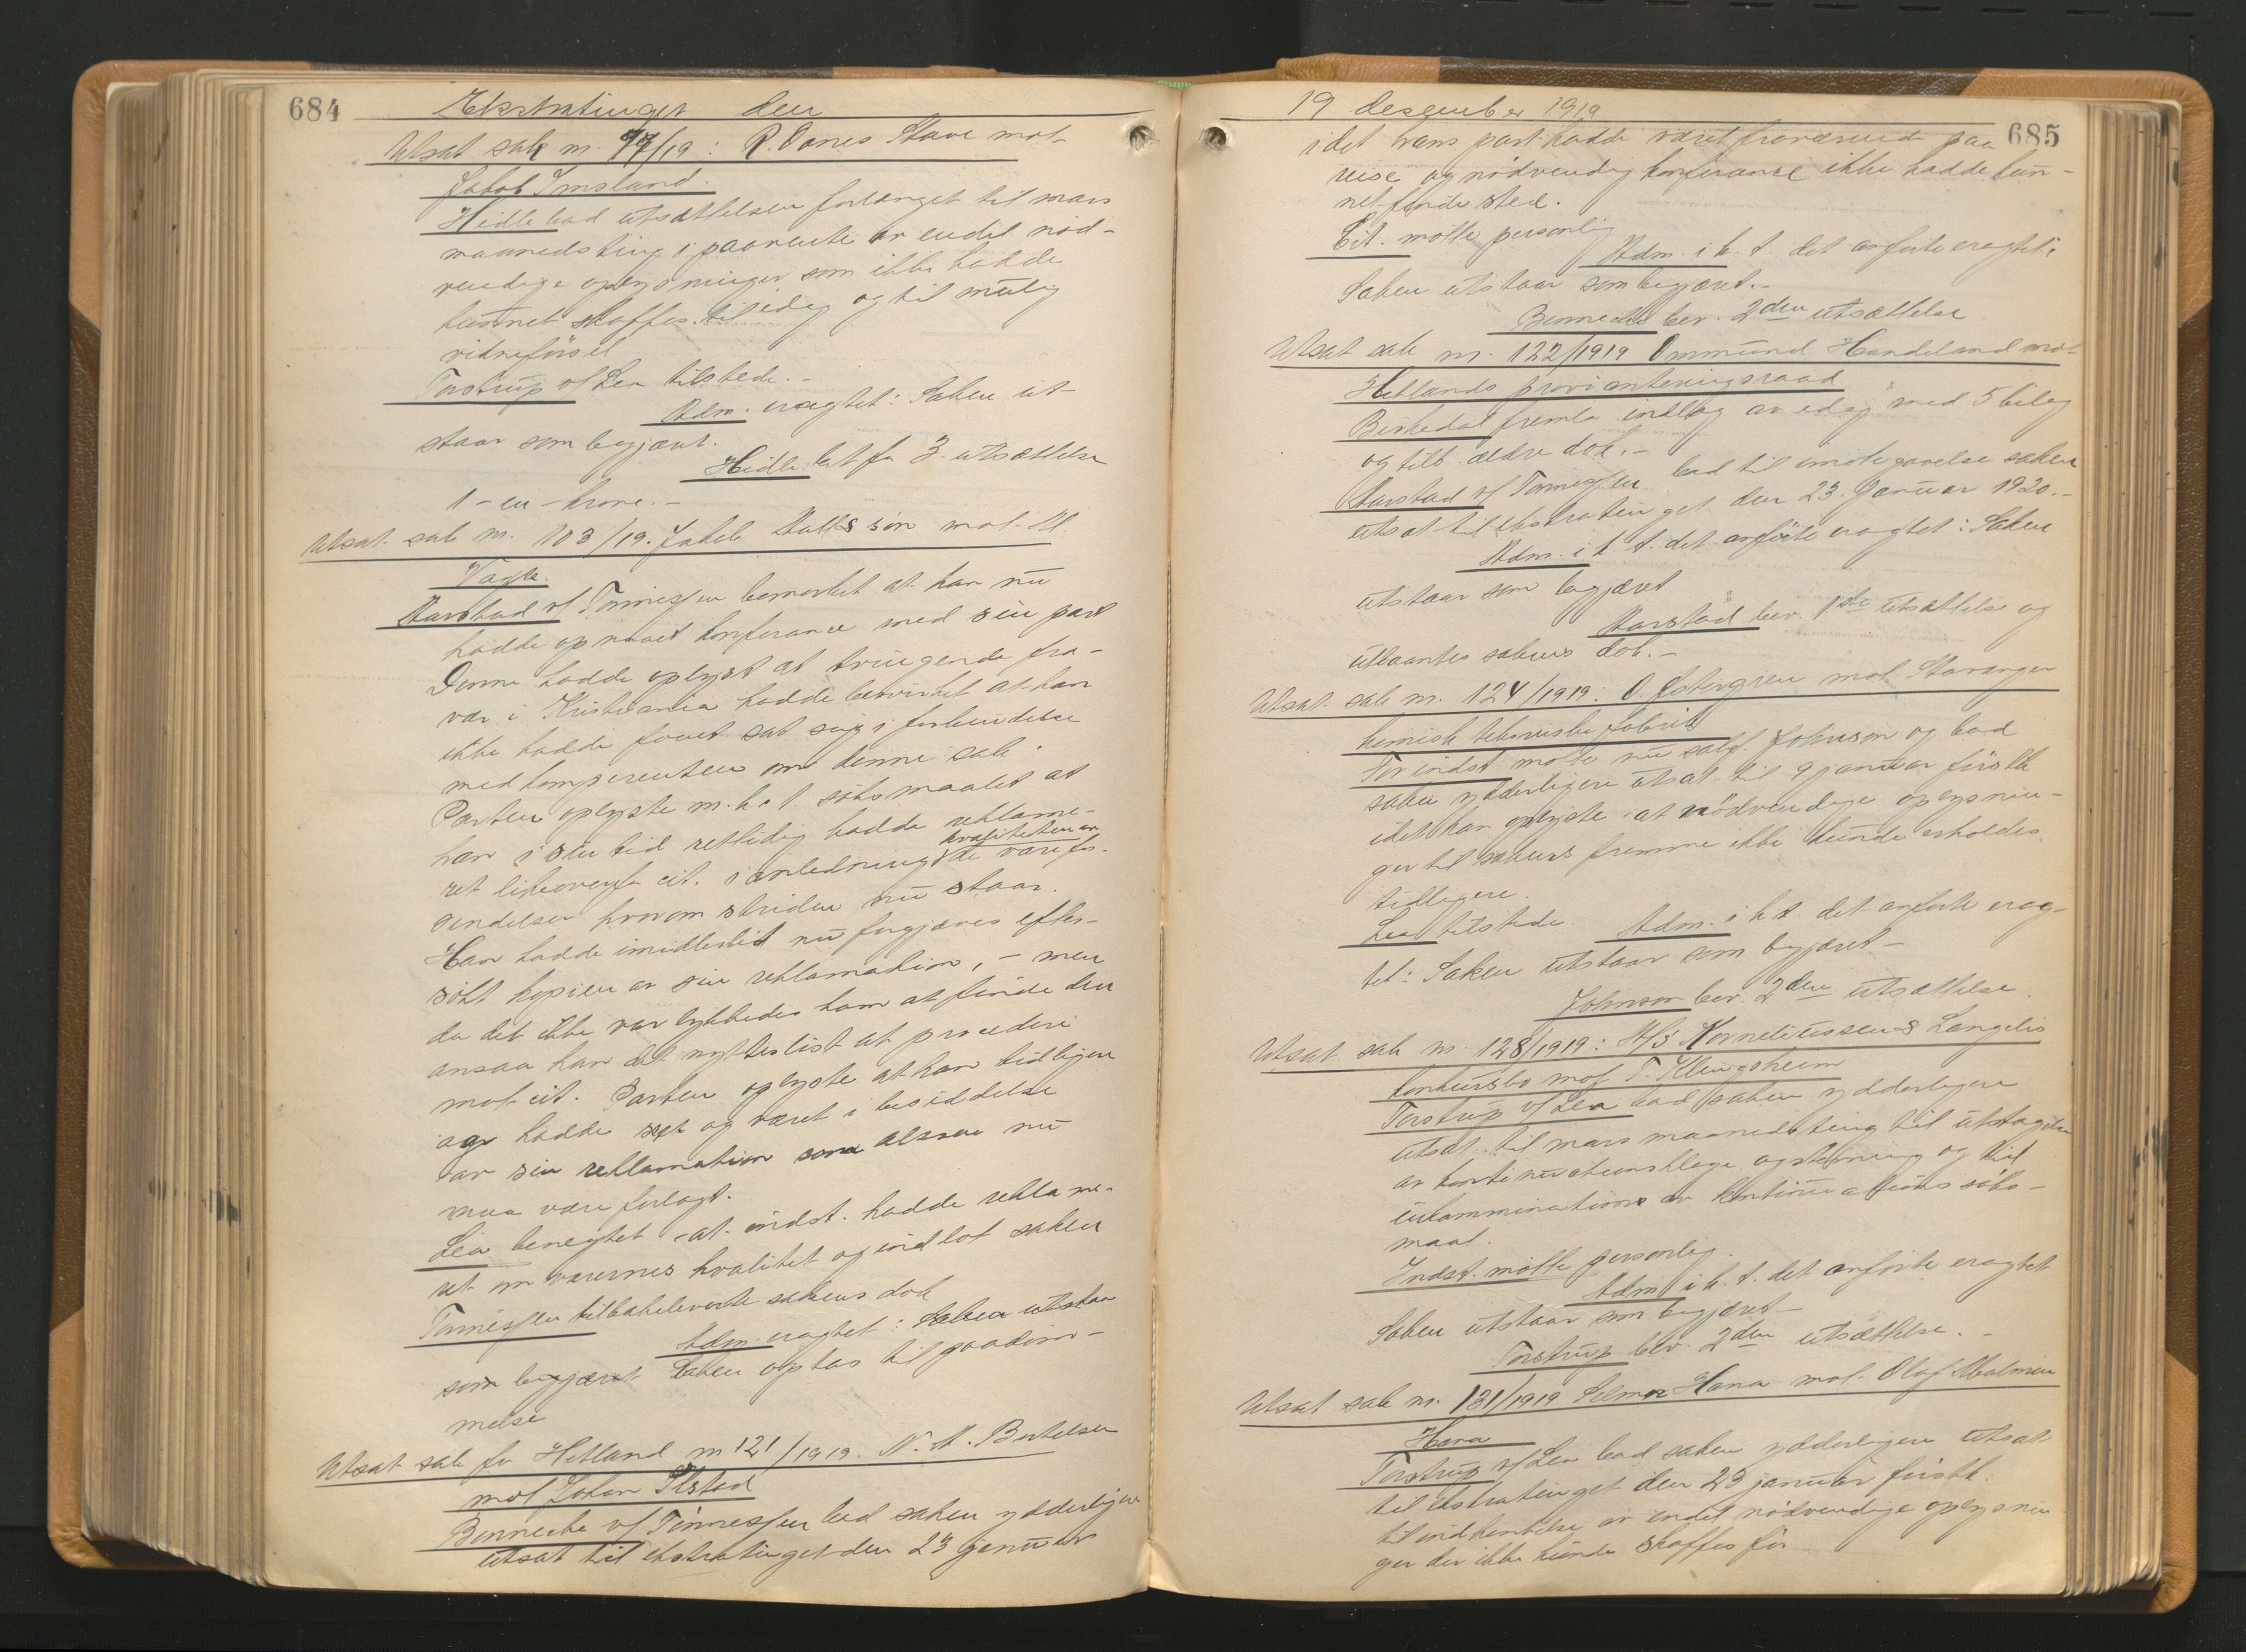 684
Ekstratinget den
Utsat sak nr. 97/19: R. Oanes Stave mot
Jakob Imsland.
Hidle bad utsættelsen forlænget til mars
maanedsting i paavente av endel nöd-
vendige oplysninger som ikke hadde
kunnet skaffes til idag og til mulig
vidneförsel
Torstrup v/ Lea tilstede.-
Adm. eragtet: Saken ut-
staar som begjært.
Hidle bet for 3. utsættelse
1-en-krone.-
Utsat sak nr. 103/19. Jakob Aalkssön mot M.
Vagle.
Aarstad v/ Tönnessen bemerket at han nu
hadde opnaaet konferance med sin part
Denne hadde oplyst at tvingende fra-
vær i Kristiania hadde bevirket at han
ikke hadde faaet sat sig i forbindelse
med komparenten om denne sak.
Parten oplyste m.h.t. söksmaalet at
han i sin tid rettidig hadde reklame-
ret likeoverfor cit. i anledning kvaliteten av de varefor-
sendelser hvorom striden nu staar.
Han hadde imidlertid nu forgjæves efter-
sökt kopien av sin reklamation, - men
da det ikke var lykkedes ham at finde den
ansaa han det nytteslöst at procedere
mot cit. Parten oplyste at han tidligere
ogsaa hadde set og været i besiddelse
av sin reklamation som altsaa nu
maa være forlagt.
Lea benegtet at indst. hadde reklame-
ret om varernes kvalitet og indlot saken
Tönnessen tilbakeleverte sakens dok
Adm. eragtet: Saken utstaar
som begjæret Saken optas til paadöm-
melse
Utsat sak for Hetland nr 121/1919. N. A. Bertelsen
mot Johan Ilstad
Bennecke v/ Tönnessen bad saken ydderligere
utsat til ekstratinget den 23 januar
19 desember 1919
685
idet hans part hadde været fraværende paa
reise og nödvendig konferanse ikke hadde kun-
net finde sted.
Cit. mötte personlig
Adm. i h. t. det anförte eragtet:
Saken utstaar som begjæret.-
Bennecke bev. 2den utsættelse
Utsat sak nr. 122/1919 Ommund Handeland mot
Hetlands provianteringsraad
Birkedal fremla indlæg av idag med 5 bilag
og tilb. ældre dok.-
Aarstad v/ Tönnessen bad til imötegaaelse saken
utsat til ekstratinget den 23. Januar 1920.-
Adm. i h. t. det anförte eragtet: Saken
utstaar som begjæret
Aarstad bev. 1ste utsættelse og
utlaantes sakens dok.-
Utsat sak nr. 124/1919: O. Östergren mot Stavanger
kemisk tekniske fabrik
For indst mötte nu sakf. Johnson og bad
saken ydderligere utsat til 9 januar förstk
idet han oplyste at nödvendige oplysnin-
ger til sakens fremme ikke kunde erholdes
tidligere.
Lea tilstede Adm. i h. t. det anförte erag-
tet: Saken utstaar som begjæret-
Johnson bev. 2den utsættelse.
Utsat sak nr 128/1919: A/S Korneliussens Langelis
konkursbo mot T. Klingsheim
Torstrup v/ Lea bad saken ydderligere
utsat til mars maanedsting til uttagelse
av kontinuationsklage og stevning og til
inkammination av kontinuations söks-
maal.
Indst. mötte personlig.
Adm. i h. t. det anförte eragtet
Saken utstaar som begjæret-
Torstrup bev. 2den utsættelse.-
Utsat sak nr. 131/1919 Selmer Hana mot Olaf Malmin
Hana
Torstrup v/ Lea bad saken ydderligere utsat
til ekstratinget den 23 januar förstk.
til indhentelse av endel nödvendige oplysnin-
ger der ikke kunde skaffes för